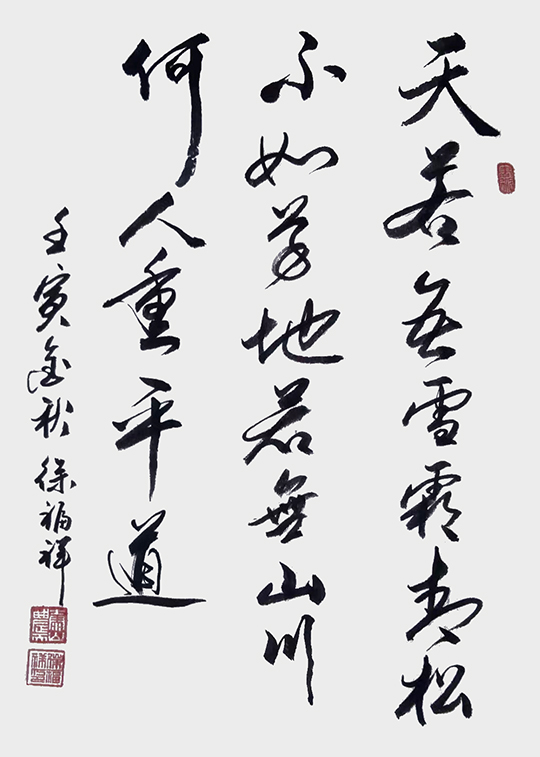 天若无雪霜青松
不如草地若無山川
何人重平道
壬寅金秋 徐福祥